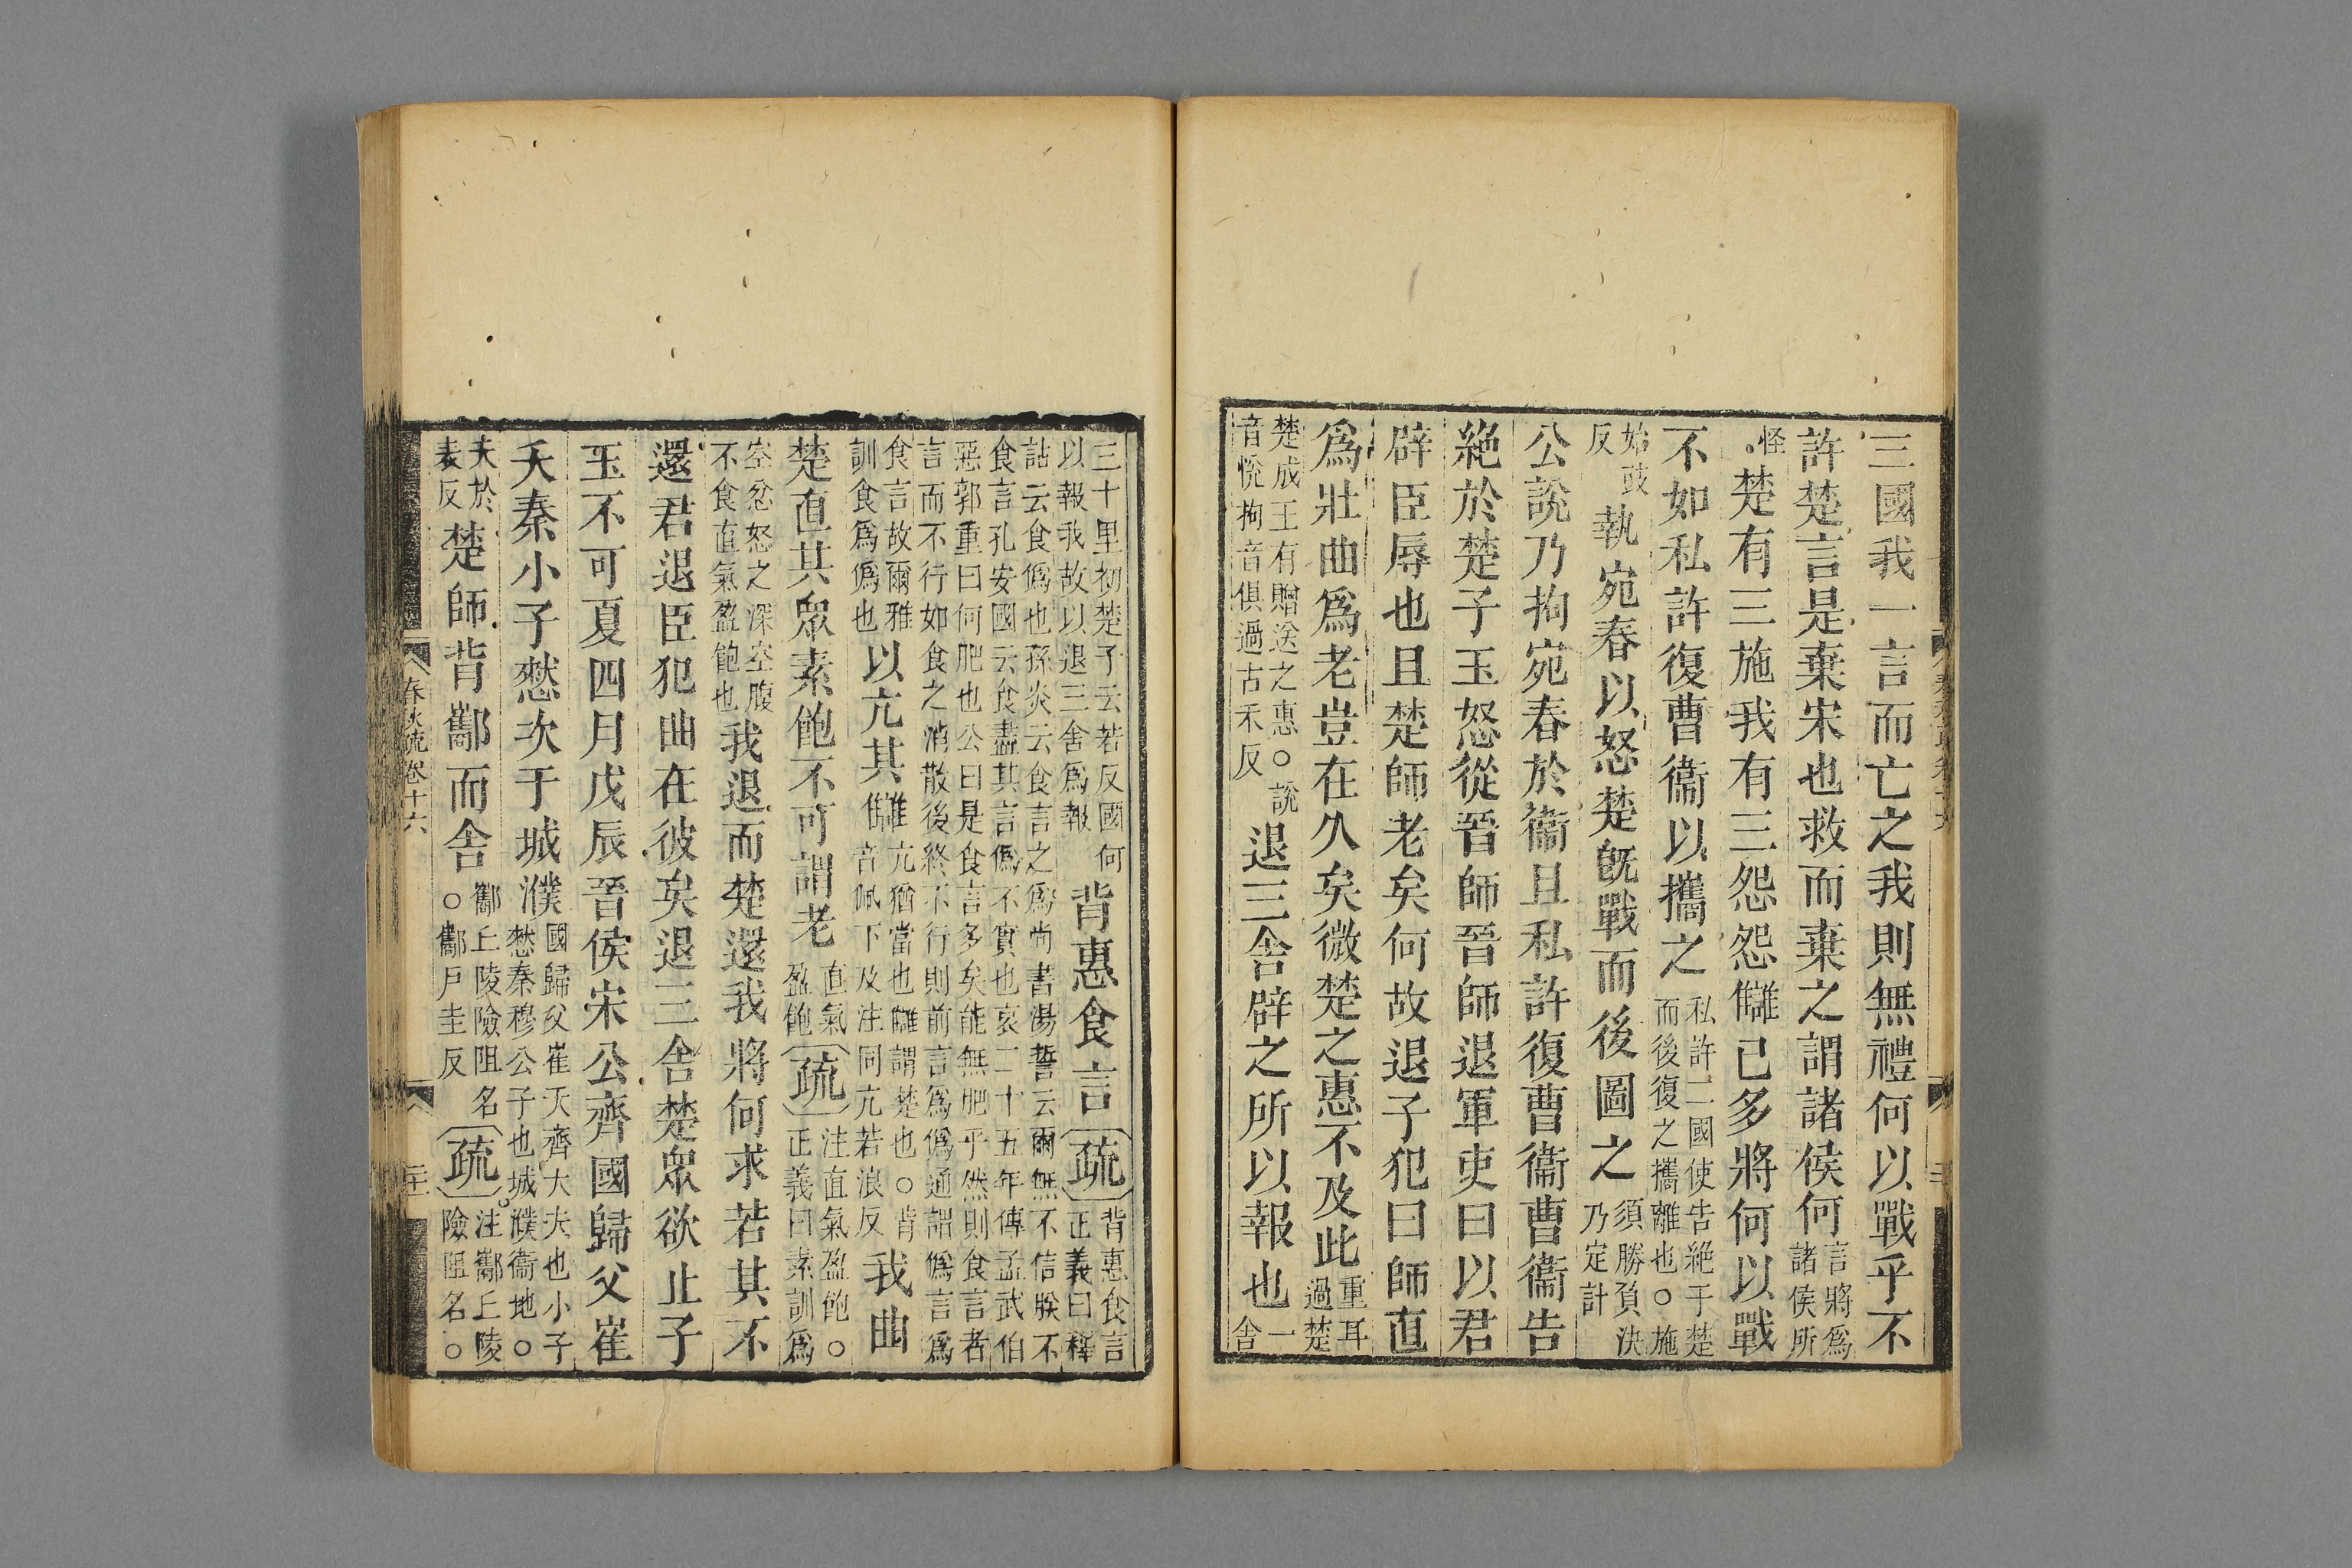 三國我一言而亡之我則無禮何以戰乎不
許楚言是棄宋也救而棄之謂諸侯何
言將爲
諸侯所
怪
○
楚有三施我有三怨怨讎已多將何以戰
不如私許復曹衞以攜之
私許二國使告絶于楚
而後復之攜離也○施
始豉
反
執宛春以怒楚旣戰而後圖之
須勝負決
乃定計
公說乃拘宛春於衞且私許復曹衞曹衞告
絶於楚子玉怒從晉師晉師退軍吏曰以君
辟臣辱也且楚師老矣何故退子犯曰師直
爲壯曲爲老豈在久矣微楚之惠不及此
重耳
過楚
楚成王有贈送之惠○說
音悅拘音俱過古禾反
退三舍辟之所以報也
一
舍
三十里初楚子云若反國何
以報我故以退三舍爲報
背惠食言
疏
背惠食言
正義曰釋
詁云食僞也孫炎云食言之爲尚書湯誓云爾無不信朕不
食言孔安國云食盡其言僞不實也哀二十五年傳孟武伯
惡郭重曰何肥也公曰是食言多矣能無肥乎然則食言者
言而不行如食之消散後終不行則前言爲僞通謂僞言爲
食言故爾雅
訓食爲僞也
以亢其讎
亢猶當也讎謂楚也○背
音佩下及注同亢若浪反
我曲
楚直其衆素飽不可謂老
直氣
盈飽
疏
注直氣盈飽○
正義曰素訓爲
空忿怒之深空腹
不食直氣盈飽也
我退而楚還我將何求若其不
還君退臣犯曲在彼矣退三舍楚衆欲止子
玉不可夏四月戊辰晉侯宋公齊國歸父崔
夭秦小子憖次于城濮
國歸父崔夭齊大夫也小子
憖秦穆公子也城濮衞地○
夭於
表反
楚師背酅而舍
酅丘陵險阻名
○酅戶圭反
疏
注酅丘陵
險阻名○
春秋疏卷十六
二十一